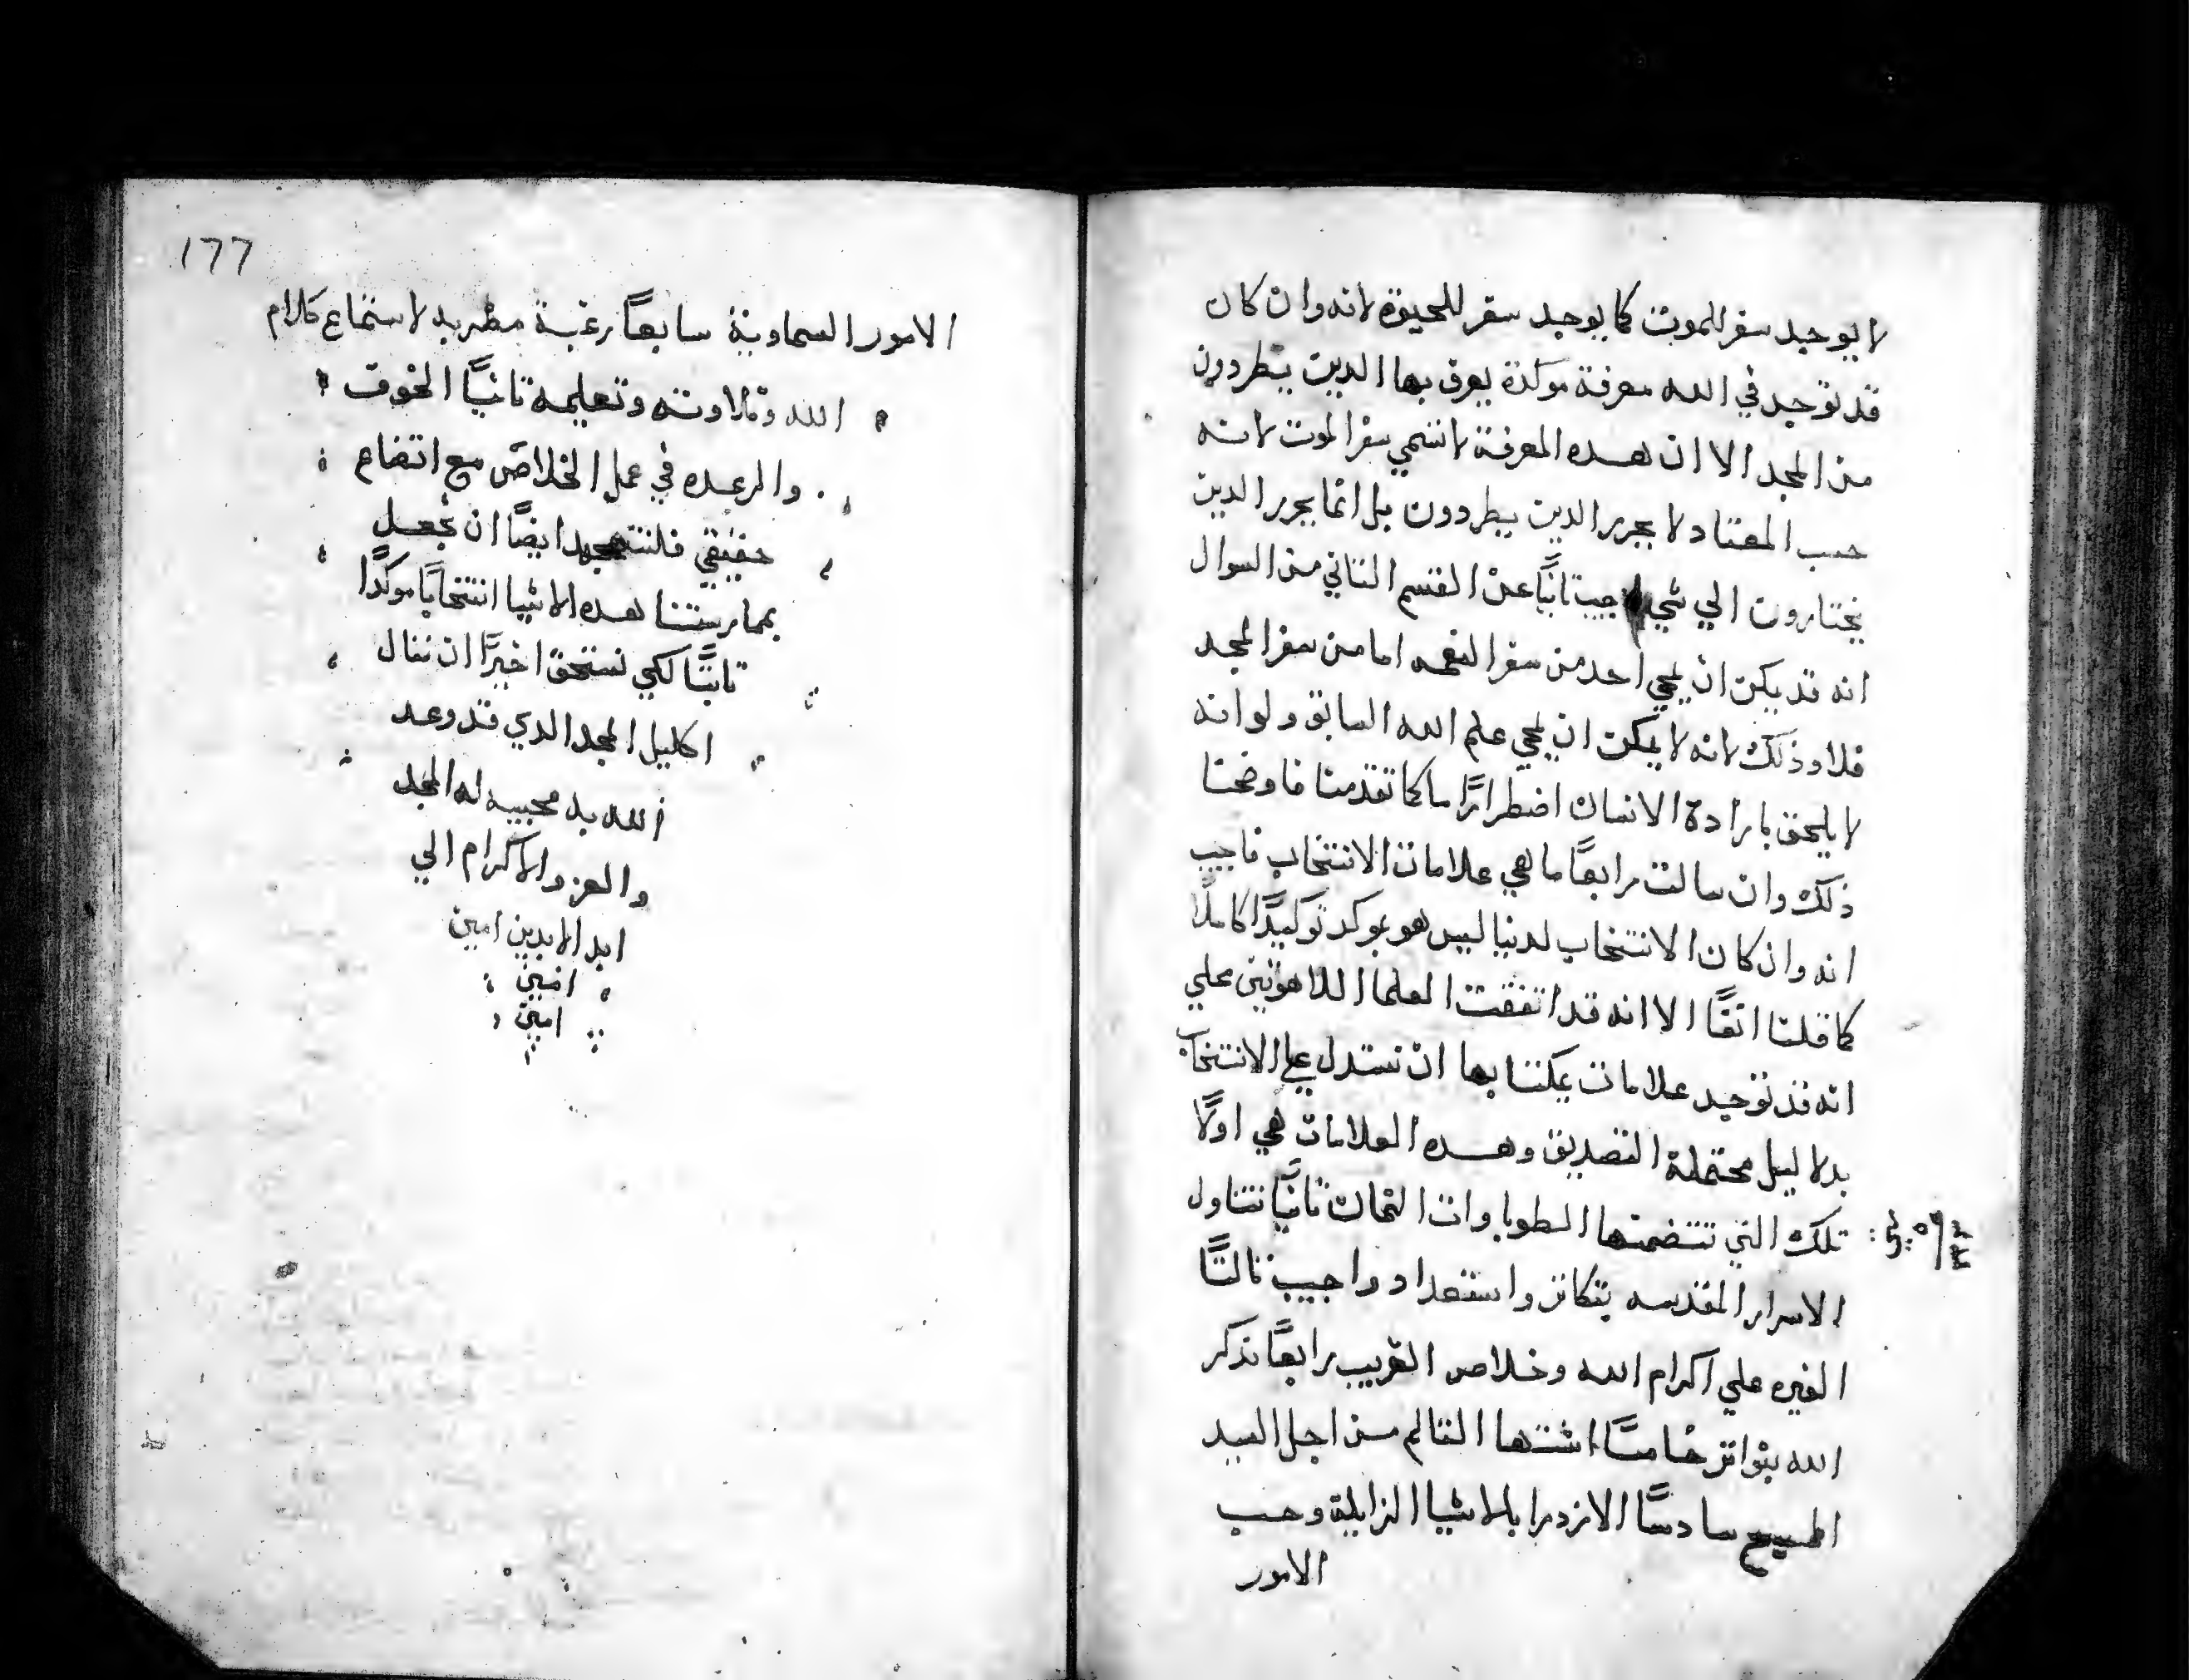 لا يوجد سفر للموت كما يوجد سفر للحيوة لانه وان كان
قد توجد في الله معرفة موكدة يعرق بها الدين يطردون
من المجد الا ان هده المعرفة لا تسمي سفر الموت لانه
حسب المعتاد لا يحرر الدين يطردون بل انما يحرر الدين
يختارون الي شي اجيب تانيًا عن القسم التاني من السوال
انه قد يمكن ان يمحي احد من سفر النعمه اما من سفر المجد
فلا وذلك لانه لا يمكن ان يمحي علم الله السابق ولو انه
لا يلحق بارادة الانسان اضطرارًا ما كما تقدمنا فاوضحنا
ذلك وان سالت رابعًا ما هي علامات الانتخاب فاجيب
انه وان كان الانتخاب لدينا ليس هو بموكد توكيدًا كاملًا
كما قلنا انفًا الا انه قد اتفقت العلما اللاهوتين علي
انه قد توجد علامات يمكننا بها ان نستدل علي الانتخاب
بدلاليل محتملة التصديق وهده العلامات هي اولًا
تلك التي تتضمنها الطوباوات التمان تانيًا تناول
الاسرار المقدسه بتكاتر واستعداد واجيب تالتًا
الغيره علي اكرام الله وخلاص القريب رابعًا تذكر
الله بتواتر خامسًا اشتها التالم من اجل السيد
المسيح سادسًا الازدرا بالاشيا الزايلة وحب
الامور
177
الامور السماوية سابعًا رغبة مطربه لاستماع كلام
الله وتلاوته وتعليمه تامنًا الخوف
والرعده في عمل الخلاص مع اتضاع
حقيقي فلنتجهد ايضًا ان نجعل
بممارستنا هده الاشيا انتخابًا موكدًا
تابتًا لكي نستحق اخيرًا ان ننال
اكليل المجد الدي قد وعد
الله به محبيه له المجد
والعز والاكرام الي
ابد الابدين امين
امين
امين